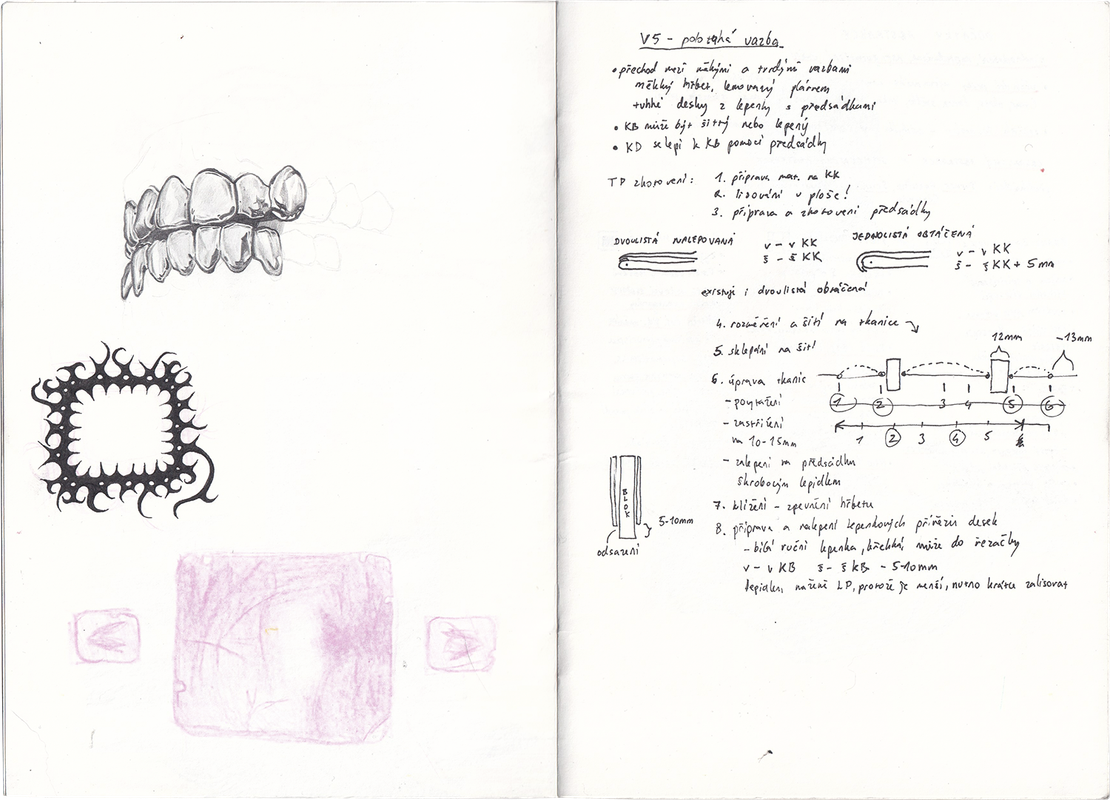 V5 - polotuhá vazba
• přechod mezi měkými a tvrdými vazbami
měkký hřbet, lemovaný plátnem
tuhhé desky z lepenky s předsádkami
• KB může být šitý nebo lepený
• KD se lepí k KB pomocí předsádky
TP zhotovení: 1. příprava mat. na KK
2. lisování v ploše!
3. příprava a zhotovení předsádky
DVOULISTÁ NALEPOVANÁ
v - v KK
š - š KK
JEDNOLISTÁ OBTÁČENÁ
v - v KK
š - š KK + 5mm
existuje i dvoulistá obtáčená
4. rozměření a šití na tkanice
5. sklepání na šití
12mm
-13mm
6. úprava tkanic
- povytažení
- zastřižení
na 10-15mm
- zalepení na předsádku
škrobovým lepidlem
1 2 3 4 5 6
1 2 3 4 5
BLOK
5-10mm
odsazení
7. klížení - zpevnění hřbetu
8. příprava a nalepení lepenkových přířezů desek
- bílá ruční lepenka, křehká, může do řezačky
v - v KB š - š KB - 5-10mm
lepidlem LP, protože je menší, nutno krátce zalisovat